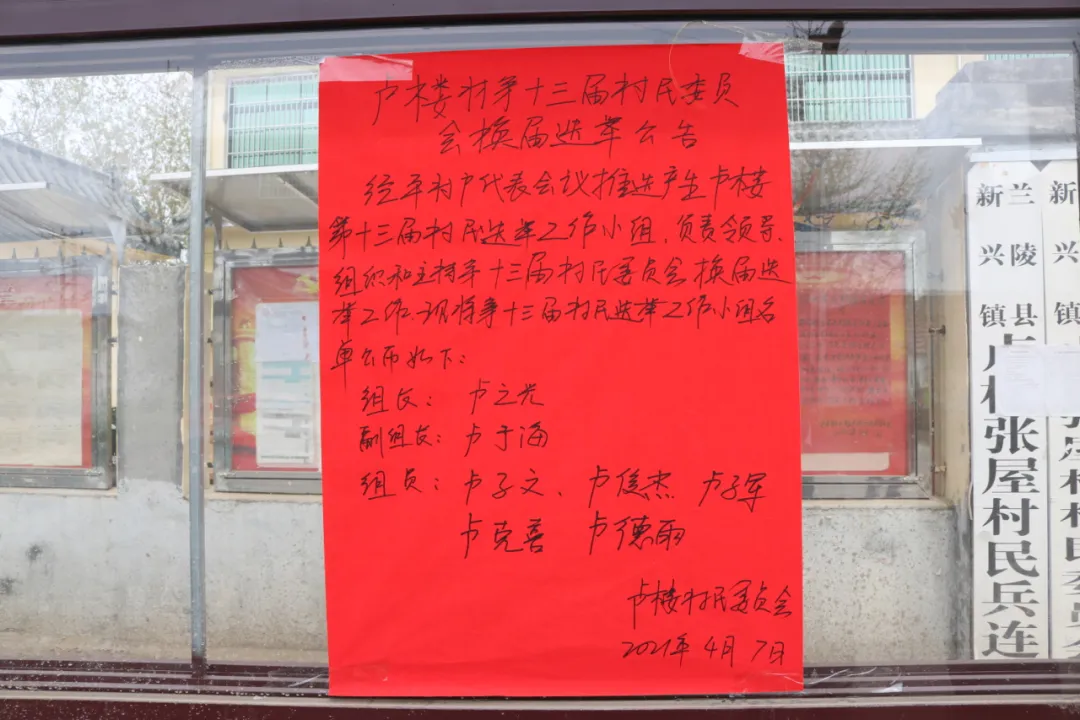 卢楼村第十三届村民委员
会换届选举公告
经平村户代表会议推选产生卢楼
第十三届村民选举工作小组，负责领导、
组织和主持第十三届村民委员会换届选
举工作。现将第十三届村民选举工作小组名
单公布如下：
组长：卢之光
副组长：卢于海
组员：卢子文、卢俊杰 卢子军
卢克喜 卢德雨
卢楼村民委员会
2021年4月7日
兰陵县
新兴镇
张屋村民兵连
新
兴
镇